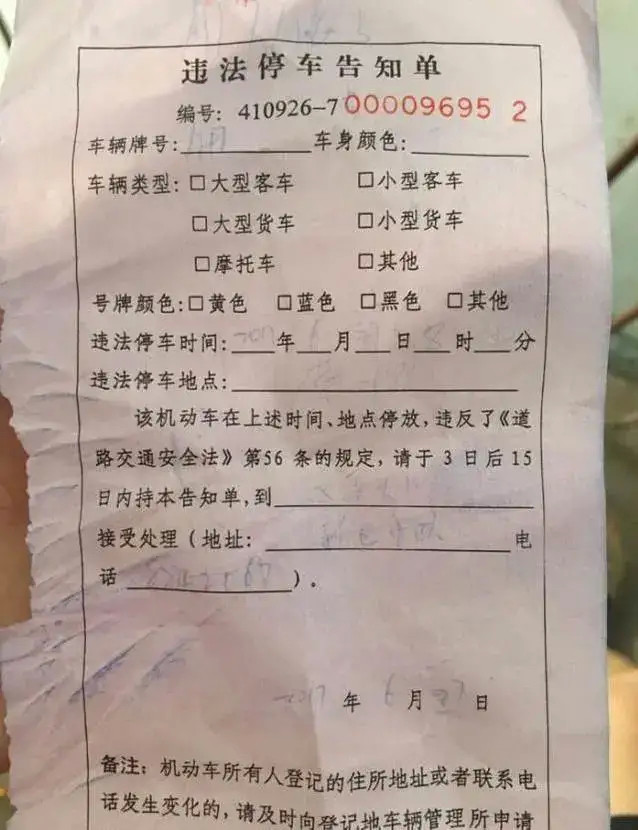 违法停车告知单
编号: 410926-7 00009695 2
车辆牌号: 车身颜色:
车辆类型: □大型客车 □小型客车
□大型货车 □小型货车
□摩托车 □其他
号牌颜色:□黄色 □蓝色 □黑色 □其他
违法停车时间: 2017年 6 月 日 8 时 分
违法停车地点:
该机动车在上述时间、地点停放,违反了《道
路交通安全法》第56 条的规定,请于 3 日后 15
日内持本告知单,到
接受处理(地址: 电
话 )。
2017 年 6 月 27 日
备注: 机动车所有人登记的住所地址或者联系电
话发生变化的,请及时向登记地车辆管理所申请